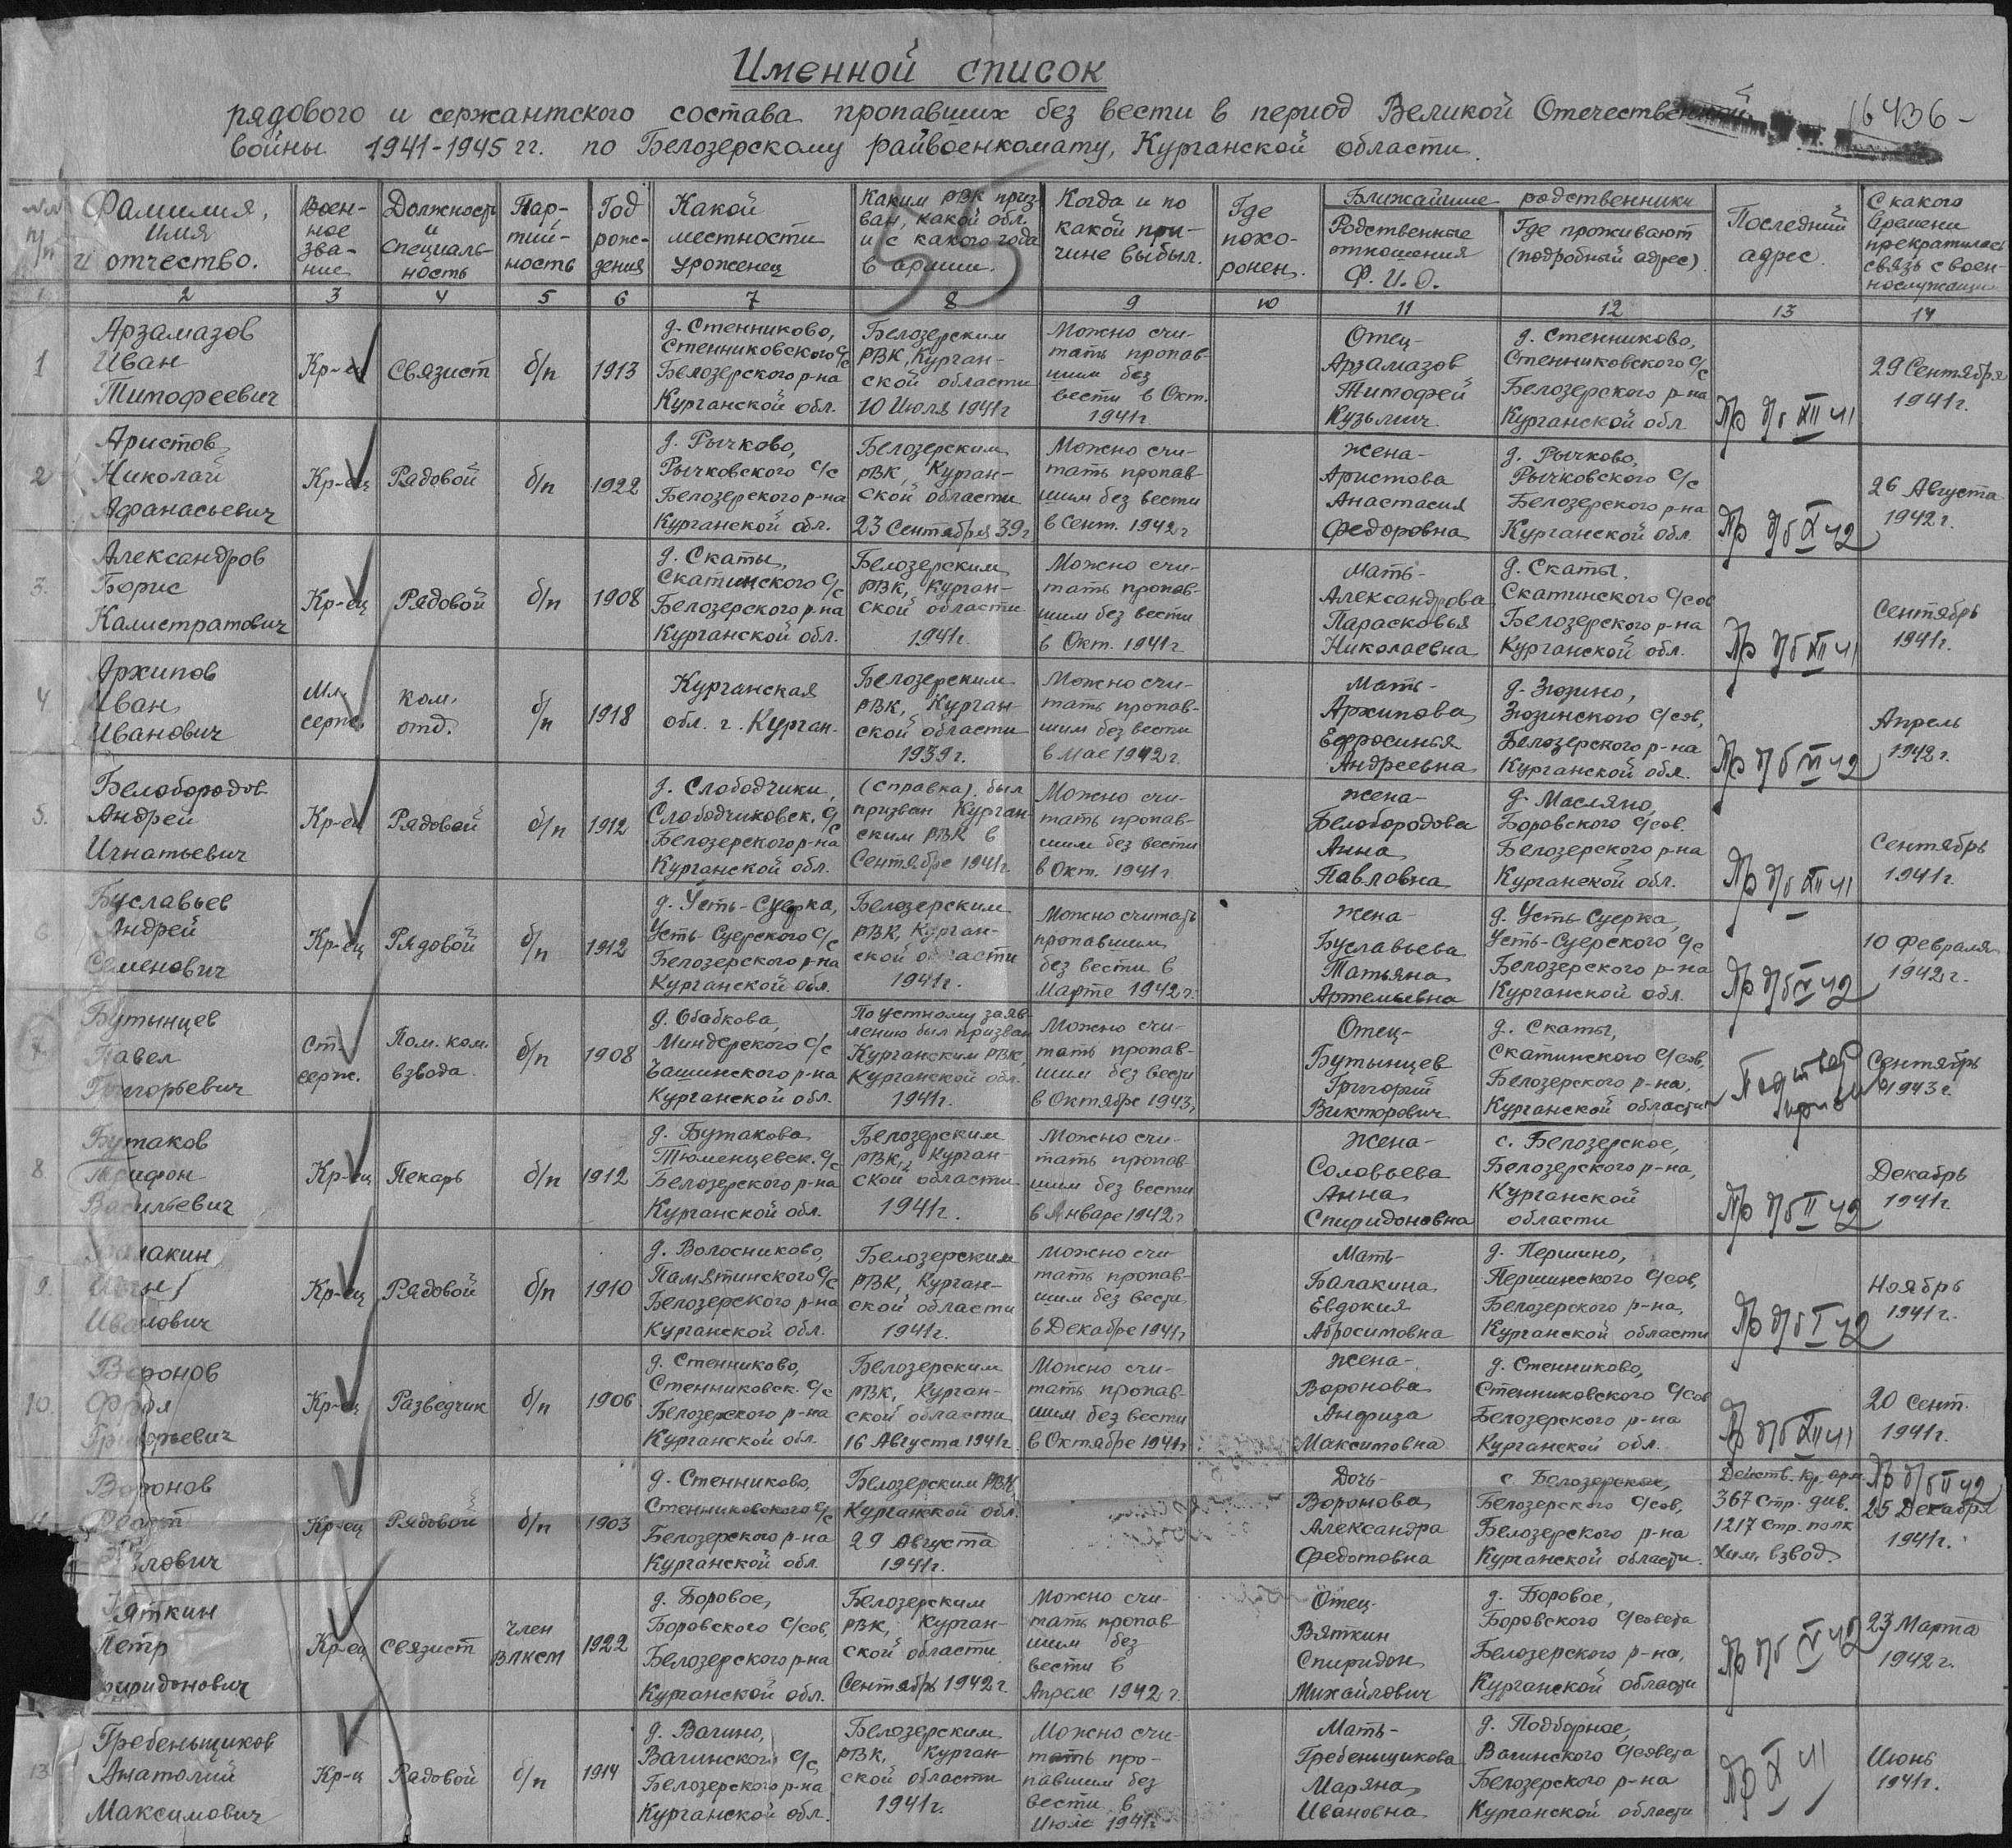 Именной список
рядового и сержантского состава пропавших без вести в период Великой Отечественной
16436-
войны 1941-1945 гг. по Белозерскому райвоенкомату, Курганской области.
55
№№ п/п
Фамилия, имя и отчество.
Воен-ное зва-ние
Должность и специаль-ность
Пар-тий-ность
Год рож-дения
Какой местности уроженец
Каким РВК приз-ван, какой обл. и с какого года в армии.
Когда и по какой при-чине выбыл.
Где похо-ронен.
Ближайшие родственники
Родственные отношения Ф.И.О.
Где проживают (подробный адрес).
Последний адрес.
С какого времени прекратилась связь с воен-нослужащим
1 2 3 4 5 6 7 8 9 10 11 12 13 14
1
Арзамазов
Иван
Тимофеевич
Кр-ец
Связист
б/п
1913
д. Стенниково,
Стенниковского с/с
Белозерского р-на
Курганской обл.
Белозерским
РВК, Курган-
ской области
10 Июля 1941г
Можно счи-
тать пропав-
шим без
вести в Окт.
1941г.
Отец-
Арзамазов
Тимофей
Кузьмич
д. Стенниково,
Стенниковского с/с
Белозерского р-на
Курганской обл
Пр б/в XII 41
29 Сентября
1941г.
2
Аристов
Николай
Афанасьевич
Кр-ец
Рядовой
б/п
1922
д. Рычково,
Рычковского с/с
Белозерского р-на
Курганской обл.
Белозерским
РВК, Курган-
ской области
23 Сентября 39г
Можно счи-
тать пропав-
шим без вести
в Сент. 1942г
жена-
Аристова
Анастасия
Федоровна
д. Рычково,
Рычковского с/с
Белозерского р-на
Курганской обл.
Пр б/в X 42
26 Августа
1942г.
3.
Александров
Борис
Калистратович
Кр-ец
Рядовой
б/п
1908
д. Скаты,
Скатинского с/с
Белозерского р-на
Курганской обл.
Белозерским
РВК, Курган-
ской области
1941г.
Можно счи-
тать пропав-
шим без вести
в Окт. 1941г
Мать-
Александрова
Парасковья
Николаевна
д. Скаты.
Скатинского с/сов
Белозерского р-на
Курганской обл.
Пр б/в XII 41
Сентябрь
1941г.
4
Архипов
Иван
Иванович
Мл.
серж.
ком.
отд.
б/п
1918
Курганская
обл. г. Курган.
Белозерским
РВК, Курган-
ской области
1939г.
Можно счи-
тать пропав-
шим без вести
в Мае 1942г.
Мать-
Архипова
Ефросинья
Андреевна
д. Зюзино,
Зюзинского с/сов,
Белозерского р-на
Курганской обл.
Пр б/в VI 42
Апрель
1942г.
5.
Белобородов
Андрей
Игнатьевич
Кр-ец
Рядовой
б/п
1912
д. Слободчики,
Слободчиковск. с/с
Белозерского р-на
Курганской обл.
(справка). был
призван Курган-
ским РВК в
Сентябре 1941г.
Можно счи-
тать пропав-
шим без вести
в Окт. 1941г.
жена-
Белобородова
Анна
Павловна
д. Масляно,
Боровского с/сов.
Белозерского р-на
Курганской обл.
Пр б/в XII 41
Сентябрь
1941г.
6
Буславьев
Андрей
Семенович
Кр-ец
Рядовой
б/п
1912
д. Усть-Суерка,
Усть-Суерского с/с
Белозерского р-на
Курганской обл.
Белозерским
РВК, Курган-
ской области
1941г.
Можно считать
пропавшим
без вести в
Марте 1942г.
жена-
Буславьева
Татьяна
Артемьевна
д. Усть-Суерка,
Усть-Суерского с/с
Белозерского р-на
Курганской обл.
Пр б/в V 42
10 Февраля
1942г.
7
Бутынцев
Павел
Григорьевич
Ст.
серж.
Пом. ком.
взвода.
б/п
1908
д. Обабкова,
Миндерского с/с
Чашинского р-на
Курганской обл.
По устному заяв-
лению был призван
Курганским РВК,
Курганской обл.
1941г.
Можно счи-
тать пропав-
шим без вести
в Октябре 1943г
Отец-
Бутынцев
Григорий
Викторович
д. Скаты,
Скатинского с/сов,
Белозерского р-на,
Курганской области
Сентябрь
1943г.
8
Бутаков
Трифон
Васильевич
Кр-ец
Пекарь
б/п
1912
д. Бутакова
Тюменцевск. с/с
Белозерского р-на
Курганской обл.
Белозерским
РВК, Курган-
ской области
1941г.
Можно счи-
тать пропав-
шим без вести
в Январе 1942г
Жена-
Соловьева
Анна
Спиридоновна
с. Белозерское,
Белозерского р-на,
Курганской
области
Пр б/в II 42
Декабрь
1941г.
9.
Балакин
Иван
Иванович
Кр-ец
Рядовой
б/п
1910
д. Волосниково,
Памятинского с/с
Белозерского р-на
Курганской обл.
Белозерским
РВК, Курган-
ской области
1941г.
Можно счи-
тать пропав-
шим без вести
в Декабре 1941г
Мать-
Балакина
Евдокия
Абросимовна
д. Першино,
Першинского с/сов,
Белозерского р-на,
Курганской области
Пр б/в I 42
Ноябрь
1941г.
10.
Воронов
Григорьевич
Кр-ец
Разведчик
б/п
1906
д. Стенниково,
Стенниковск. с/с
Белозерского р-на
Курганской обл.
Белозерским
РВК, Курган-
ской области
16 Августа 1941г.
Можно счи-
тать пропав-
шим без вести
в Октябре 1941г
жена-
Воронова
Анфиза
Максимовна
д. Стенниково,
Стенниковского с/сов
Белозерского р-на
Курганской обл.
Пр б/в XII 41
20 Сент.
1941г.
Воронов
Кр-ец
Рядовой
б/п
1903
д. Стенниково,
Стенниковского с/с
Белозерского р-на
Курганской обл.
Белозерским РВК,
Курганской обл.
29 Августа
1941г.
Дочь-
Воронова
Александра
Федотовна
с. Белозерское,
Белозерского с/сов,
Белозерского р-на
Курганской области.
Действ. кр. арм.
367 Стр. див.
1217 Стр. полк
хим. взвод.
Пр б/в II 42
25 Декабря
1941г.
Вяткин
Петр
Спиридонович
Кр-ец
Связист
член
ВЛКСМ
1922
д. Боровое,
Боровского с/сов,
Белозерского р-на
Курганской обл.
Белозерским
РВК, Курган-
ской области
Сентябрь 1942г.
Можно счи-
тать пропав-
шим без
вести в
Апреле 1942г.
Отец-
Вяткин
Спиридон
Михайлович
д. Боровое,
Боровского с/совета
Белозерского р-на,
Курганской области
Пр б/в V 42
23 Марта
1942г.
13
Гребеньщиков
Анатолий
Максимович
Кр-ц
Рядовой
б/п
1914
д. Вагино,
Вагинского с/с,
Белозерского р-на
Курганской обл.
Белозерским
РВК, Курган-
ской области
1941г.
Можно счи-
тать про-
павшим без
вести в
Июле 1941г
Мать-
Гребенщикова
Маряна
Ивановна
д. Подборное,
Вагинского с/совета
Белозерского р-на
Курганской области
Пр X 41
Июнь
1941г.